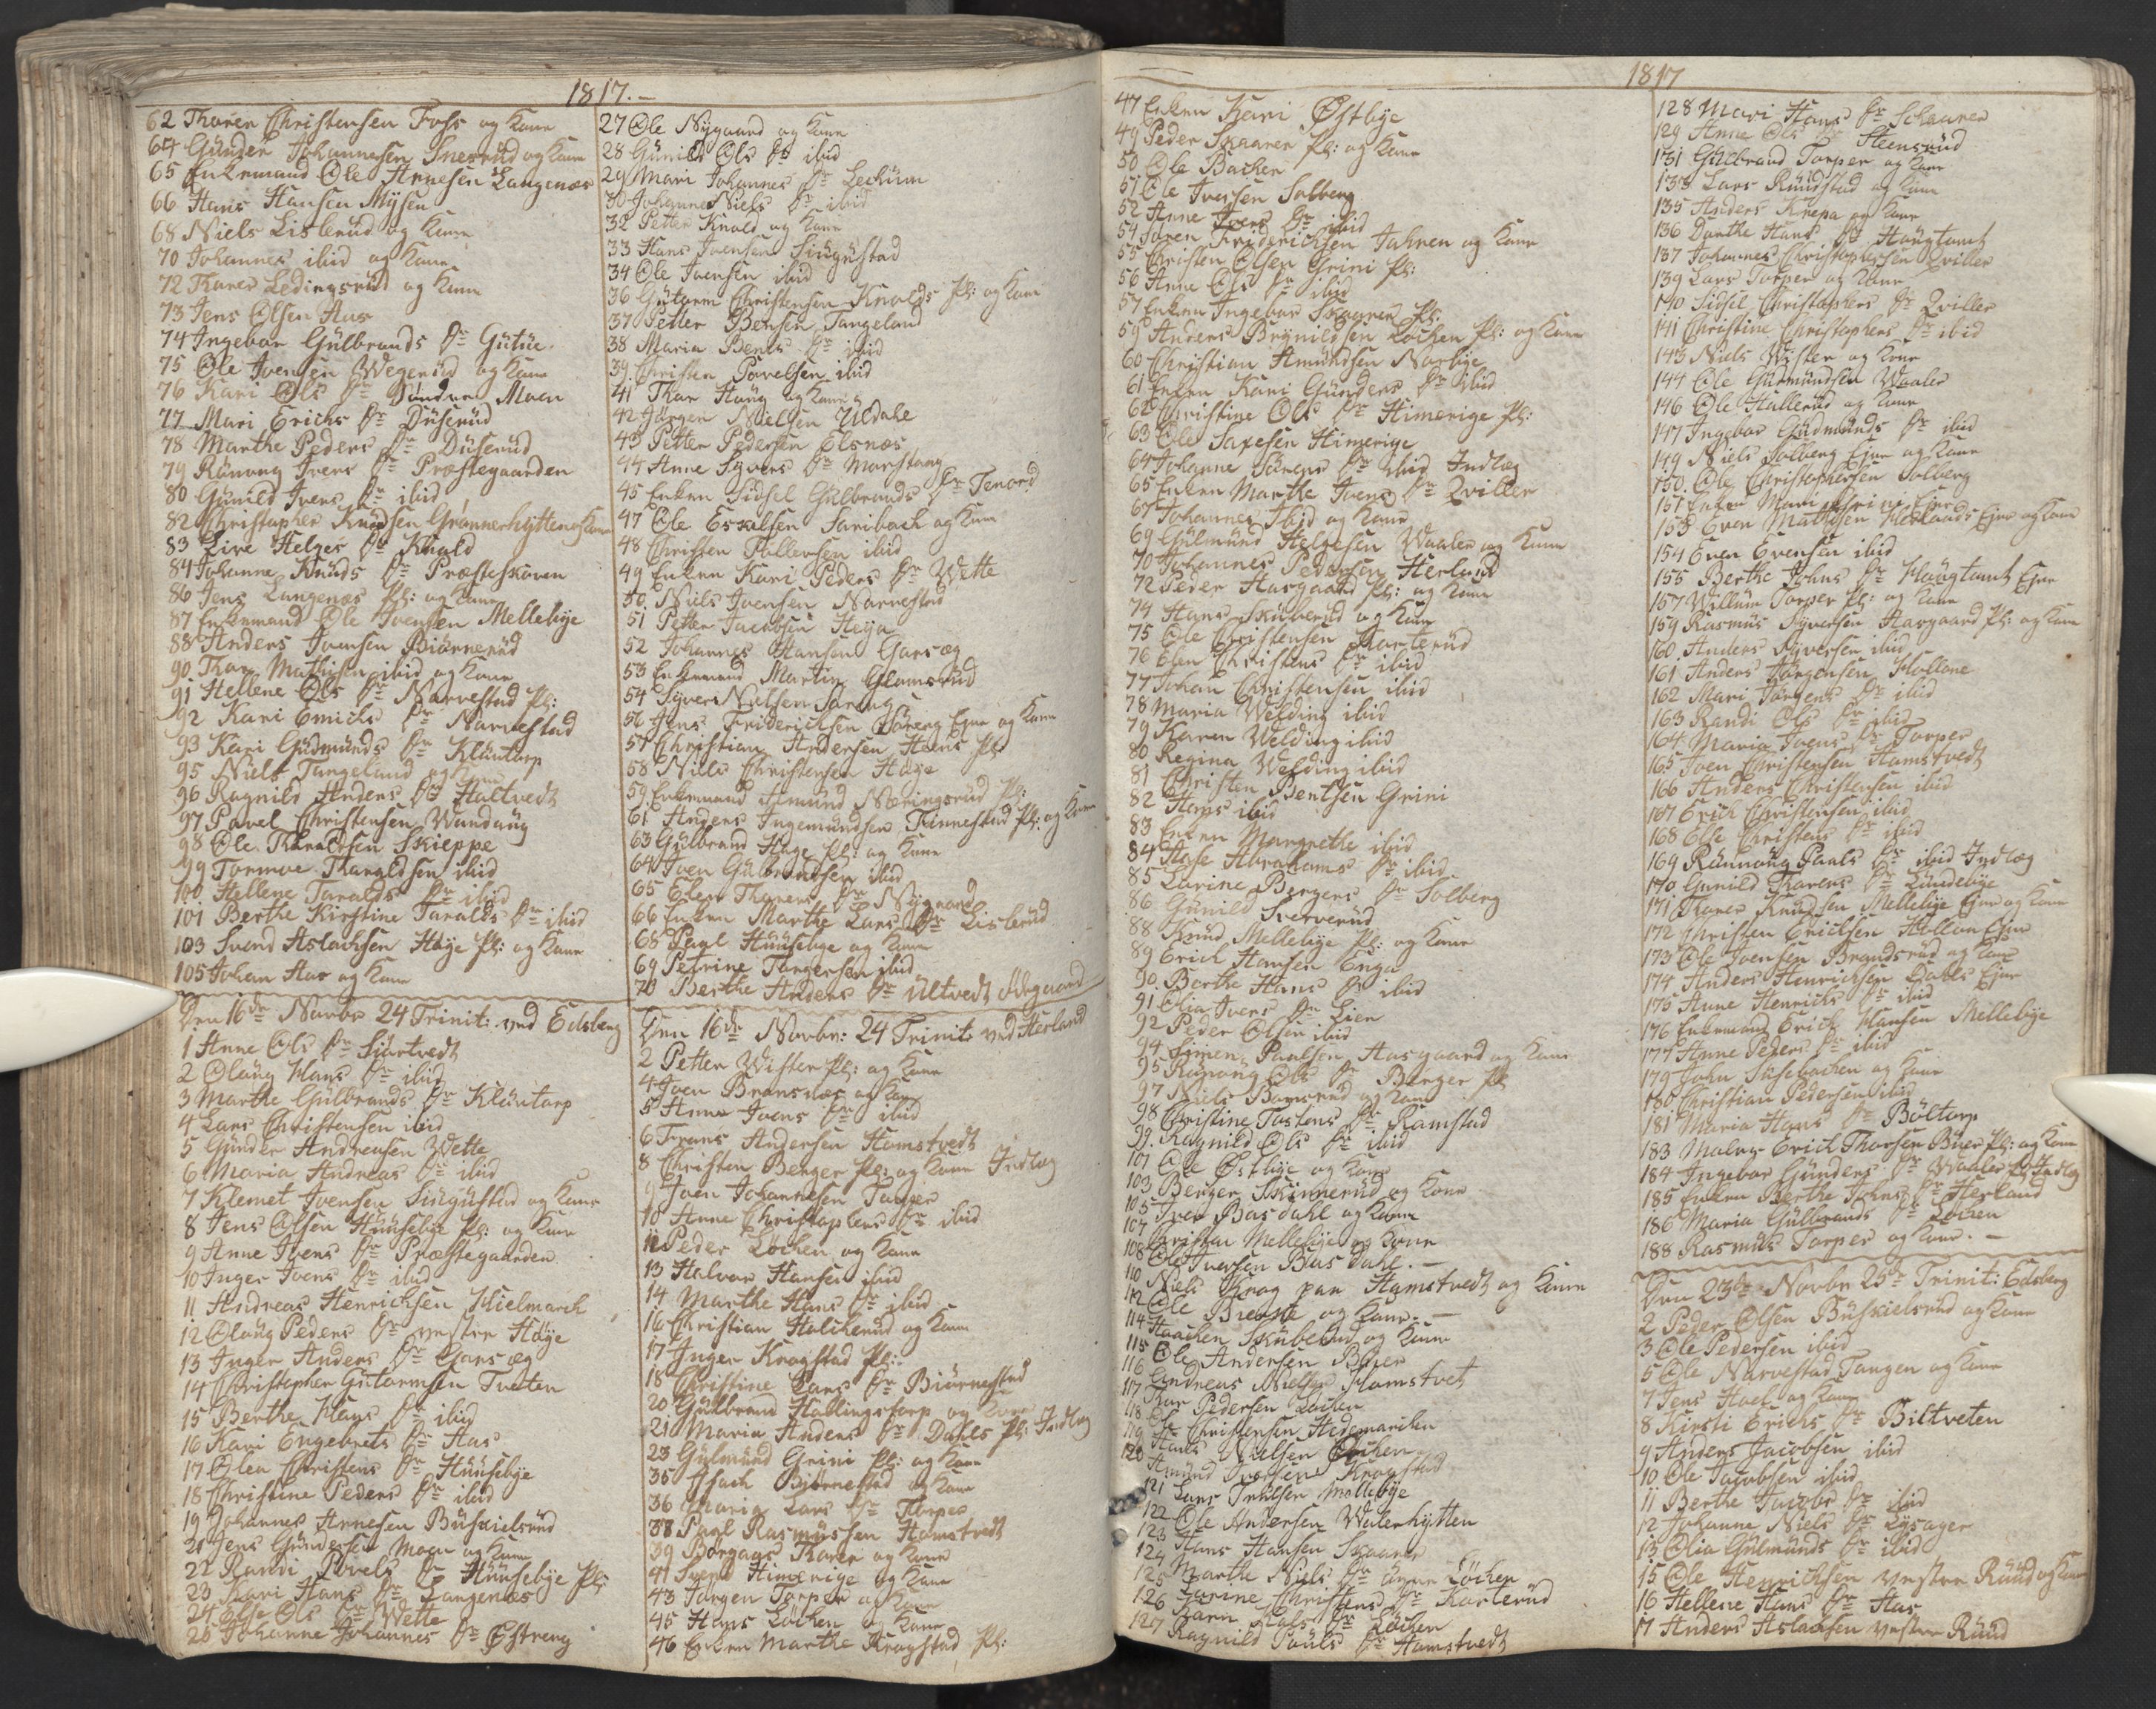 1817.-
62 Tharer Christensen Foss og Kone
64 Gunder Johannesen Snerud og Kone
65 Enkemand Ole Arnesen Langenæs
66 Hans Hansen Mysen
68 Niels Lislerud og Kone
70 Johannes ibid og Kone
72 Tharer Ledingsrud og Kone
73 Jens Olsen Aas
74 Ingebor Gülbrands Dr Gütüe
75 Ole Joensen Wegerud og Kone
76 Kari Ols Dr Söndre Moen
77 Mari Erichs Dr Düserüd
78 Marthe Peders Dr Düserüd
79 Rünaug Ivers Dr Præstegaarden
80 Günild Ivers Dr ibid
82 Christopher Knudsen Grønnerhytten og Kone
83 Live Helges Dr Knold
84 Johanne Knüds Dr Præsteskoven
86 Jens Langenæs Pl: og Kone
87 Enkemand Ole Joensen Mellebye
88 Anders Joensen Biørnerüd
90 Thor Mathisen ibid og Kone
91 Hellene Ols Dr Narvestad Pl:
92 Kari Emichs Dr Narvestad
93 Kari Gudmunds Dr Klüntorp
95 Niels Tangeland og Kone
96 Ragnild Anders Dr Haltvedt
97 Pavel Christensen Wandaug
98 Ole Tharaldsen Skieppe
99 Tormoe Tharaldsen ibid
100 Hellene Taralds Dr ibid
101 Berthe Kirstine Taralds Dr ibid
103 Svend Aslachsen Høye Pl: og Kone
105 Johan Aas og Kone
Den 16de Novbr 24 Trinit: ved Edsberg
1 Anne Ols Dr Siørtvedt
2 Olaug Hans Dr ibid
3 Marthe Gülbrands Dr Klüntorp
4 Lars Christensen ibid
5 Günder Andreasen Wette
6 Maria Andreas Dr ibid
7 Klemet Joensen Singüstad og Kone
8 Jens Olsen Hüüsebye Pl: og Kone
9 Anne Ivers Dr Præstegaarden
10 Inger Joens Dr ibid
11 Andreas Henrichsen Hielmarck
12 Olaug Peders Dr vestre Høye
13 Inger Anders Dr Garseg
14 Christopher Gutormsen Tveten
15 Berthe Hans Dr ibid
16 Kari Engebrets Dr Aas
17 Olea Christens Dr Hüüsebye
18 Christine Peders Dr ibid
19 Johannes Arnesen Büskielsrüd
21 Jens Gündersen Moen og Kone
22 Randi Povels Dr Hüüsebye Pl:
23 Kari Hans Dr Langenæs
24 Else Ols Dr Wette
25 Johanne Johannes Dr Østreng
27 Ole Nygaard og Kone
28 Günild Ols Dr ibid
29 Mari Johannes Dr Lechum
30 Johanne Niels Dr ibid
32 Petter Knold og Kone
33 Hans Joensen Singüstad
34 Ole Joensen ibid
36 Gutorm Christensen Knolds Pl: og Kone
37 Petter Bensen Tangeland
38 Maria Bents Dr ibid
39 Christen Povelsen ibid
41 Thor Haug og Kone
42 Jörgen Nielsen Uldahl
43 Petter Pedersen Elsnæs
44 Anne Syvers Dr Morstang
45 Enken Sidsel Gülbrands Dr Tenord
47 Ole Eskelsen Saribach og Kone
48 Christen Tollevsen ibid
49 Enken Kari Peders Dr Wette
50 Niels Joensen Narvestad
51 Petter Jacobsen Heya
52 Johannes Hansen Garseg
53 Enkemand Martin Glamsrud
54 Syver Nielsen Søreng
56 Jens Friderichsen Søreng Ejer og Kone
57 Christian Andersen Heens Pl:
58 Niels Christensen Høye
59 Enkemand Amund Næringsrüd Pl:
61 Anders Ingemundsen Finnestad Pl: og Kone
63 Gülbrand Høge Pl: og Kone
64 Joen Gülbrandsen ibid
65 Elen Thorers Dr Nygaard
66 Enken Marthe Lars Dr Lislerud
68 Paul Hüüsebye og Kone
69 Petrine Torgersen ibid
70 Berthe Anders Dr Ultvedt Ødegaard
Den 16de Novbr: 24 Trinit ved Herland
2 Petter Wister Pl: og Kone
4 Joen Bransnæs og Kone
5 Anne Joens Dr ibid
6 Frans Andersen Hamstvedt
8 Christen Berger Pl: og Kone Indlæg
9 Joen Johannesen Tanger
10 Anne Christophers Dr ibid
12 Peder Løchen og Kone
13 Halvor Hansen ibid
14 Marthe Hans Dr ibid
16 Christian Halckerud og Kone
17 Inger Kragstad Pl:
18 Christine Lars Dr Biørnestad
20 Gülbrand Hallingstorp og Kone
21 Maria Anders Dr Dahls Pl: Indlæg
23 Gülmünd Grini Pl: og Kone
35 Isach Biørnestad og Kone
36 Maria Lars Dr Torper
38 Paul Rasmüssen Hamstvedt
39 Borgaas Thorer og Kone
41 Svend Himerige og Kone
43 Jörgen Torper og Kone
45 Hans Løchen og Kone
46 Enken Marthe Kragstad Pl:
1817
47 Enken Kari Østbye
49 Peder Skaaren Pl: og Kone
50 Ole Bachen
51 Ole Iversen Solberg
52 Anne Ivers Dr ibid
54 Søren Friderichsen Jahren og Kone
55 Christen Olsen Grini Pl:
56 Anne Ols Dr ibid
57 Enken Ingebor Skaaren Pl:
59 Anders Brynildsen Løchen Pl: og Kone
60 Christian Amündsen Norbye
61 Enken Kari Günders Dr ibid
62 Christine Ols Dr Himerige Pl:
63 Ole Saxesen Himerige
64 Johanne Sørens Dr ibid Indlæg
65 Enken Marthe Joens Dr Qviller
67 Johannes Ibid og Kone
69 Gülmünd Helgesen Waaler og Kone
70 Johannes Pedersen Herland
72 Peder Hasgaard Pl: og Kone
74 Hans Sküberüd og Kone
75 Ole Christensen Karterüd
76 Elen Christens Dr ibid
77 Johan Christensen ibid
78 Maria Welding ibid
79 Karen Welding ibid
80 Regina Welding ibid
81 Christen Bentsen Grini
82 Hans ibid
83 Enken Margrethe ibid
84 Aase Abrahams Dr ibid
85 Larine Bergers Dr Solberg
86 Günild Sververüd
88 Knüd Mellebye Pl: og Kone
89 Erich Hansen Enga
90 Berthe Hans Dr ibid
91 Olia Ivers Dr Lien
92 Peder Olsen ibid
94 Simen Paulsen Aasgaard og Kone
95 Rünaug Ols Dr Berger Pl
97 Niels Bamrud og Kone
98 Christine Tostens Dr Ramstad
99 Ragnild Ols Dr ibid
101 Ole Østbye og Kone
103 Berger Skinnerud og Kone
105 Iver Basdahl og Kone
107 Christen Mellebye og Kone
108 Ole Iversen Bas Dahl.-
110 Niels Krog paa Hamstvedt og Kone
112 Ole Brecke og Kone.-
114 Haachen Sküberud og Kone
115 Ole Andersen Buer
116 Andreas Nielsen Hamstvet
117 Thor Pedersen Løchen
118 Ole Christensen Hedemarchen
119 Hans Nielsen Løchen
120 Amünd Iversen Kragstad
121 Lars Truelsen Mellebye
122 Ole Andersen Walerhytten
123 Hans Hansen Skaaren
124 Marthe Niels Dr øvre Løchen
125 Larine Christens Dr Karterüd
126 Karen Lars Dr Løchen
127 Ragnild Pauls Dr Hamstvedt
1817
128 Mari Hans Dr Schaaren
129 Anne Ols Dr Steensrüd
131 Gülbrand Torper og Kone
133 Lars Rüüdstad og Kone
135 Anders Knepa og Kone
136 Dorthe Hans Dr Haugtomt
137 Johannes Christophersen Qviller
139 Lars Torper og Kone
140 Sidsel Christophers Dr Qviller
141 Christine Christophers Dr ibid
143 Niels Wister og Kone
144 Ole Gudmündsen Waaler
146 Ole Hallerüd og Kone
147 Ingebor Gudmünds Dr ibid
149 Niels Solberg Ejer og Kone
150. Ole Christophersen Solberg
151 Enken Mari Grini Ejer
153 Even Mathisen Herlands Ejer og Kone
154 Even Evensen ibid
155 Berthe Johns Dr Haugtomt Ejer
157 Willum Torper Pl: og Kone
159 Rasmus Syversen Hasgaard Pl: og Kone
160 Anders Syversen ibid
161 Anders Jörgensen Hollone
162 Mari Jörgens Dr ibid
163 Randi Ols Dr ibid
164 Maria Joens Dr Torper
165 Joen Christensen Hamstvedt
166 Anders Christensen ibid
167 Erich Christensen ibid
168 Else Christens Dr ibid
169 Rünnaug Paals Dr ibid Indlæg
170 Gunild Tharers Dr Lundebye
171 Tharer Knudsen Mellebye Ejer og Kone
172 Christen Erichsen Hollon Ejer
173 Ole Joensen Brandsrud og Kone
174 Anders Henrichsen Dahls Ejer
175 Anne Henrichs Dr ibid
176 Enkemand Erich Hansen Mellebye
177 Anne Peders Dr ibid
179 John Susebachen og Kone
180 Christian Pedersen ibid
181 Maria Hans Dr Böltorp
183 Maler Erich Thorsen Buer Pl: og Kone
184 Ingebor Günders Dr Waaler Indlæg
185 Enken Berthe Johns Dr Herland
186 Maria Gülbrands Dr Løchen
188 Rasmus Torper og Kone.-
Den 23de Novbr 25de Trinit: Edsberg
2 Peder Olsen Büskielsrüd og Kone
3 Ole Pedersen ibid
5 Ole Narvestad Tangen og Kone
7 Jens Hoel og Kone
8 Kirsti Erichs Dr Biltveten
9 Anders Jacobsen ibid
10 Ole Jacobsen ibid
11 Berthe Jacobs Dr ibid
12 Johanne Niels Dr Lysager
13 Olia Gülmünds Dr ibid
15 Ole Henrichsen vestre Rüüd og Kone
16 Hellene Hans Dr Aas
17 Anders Aslaksen vestre Rüüd